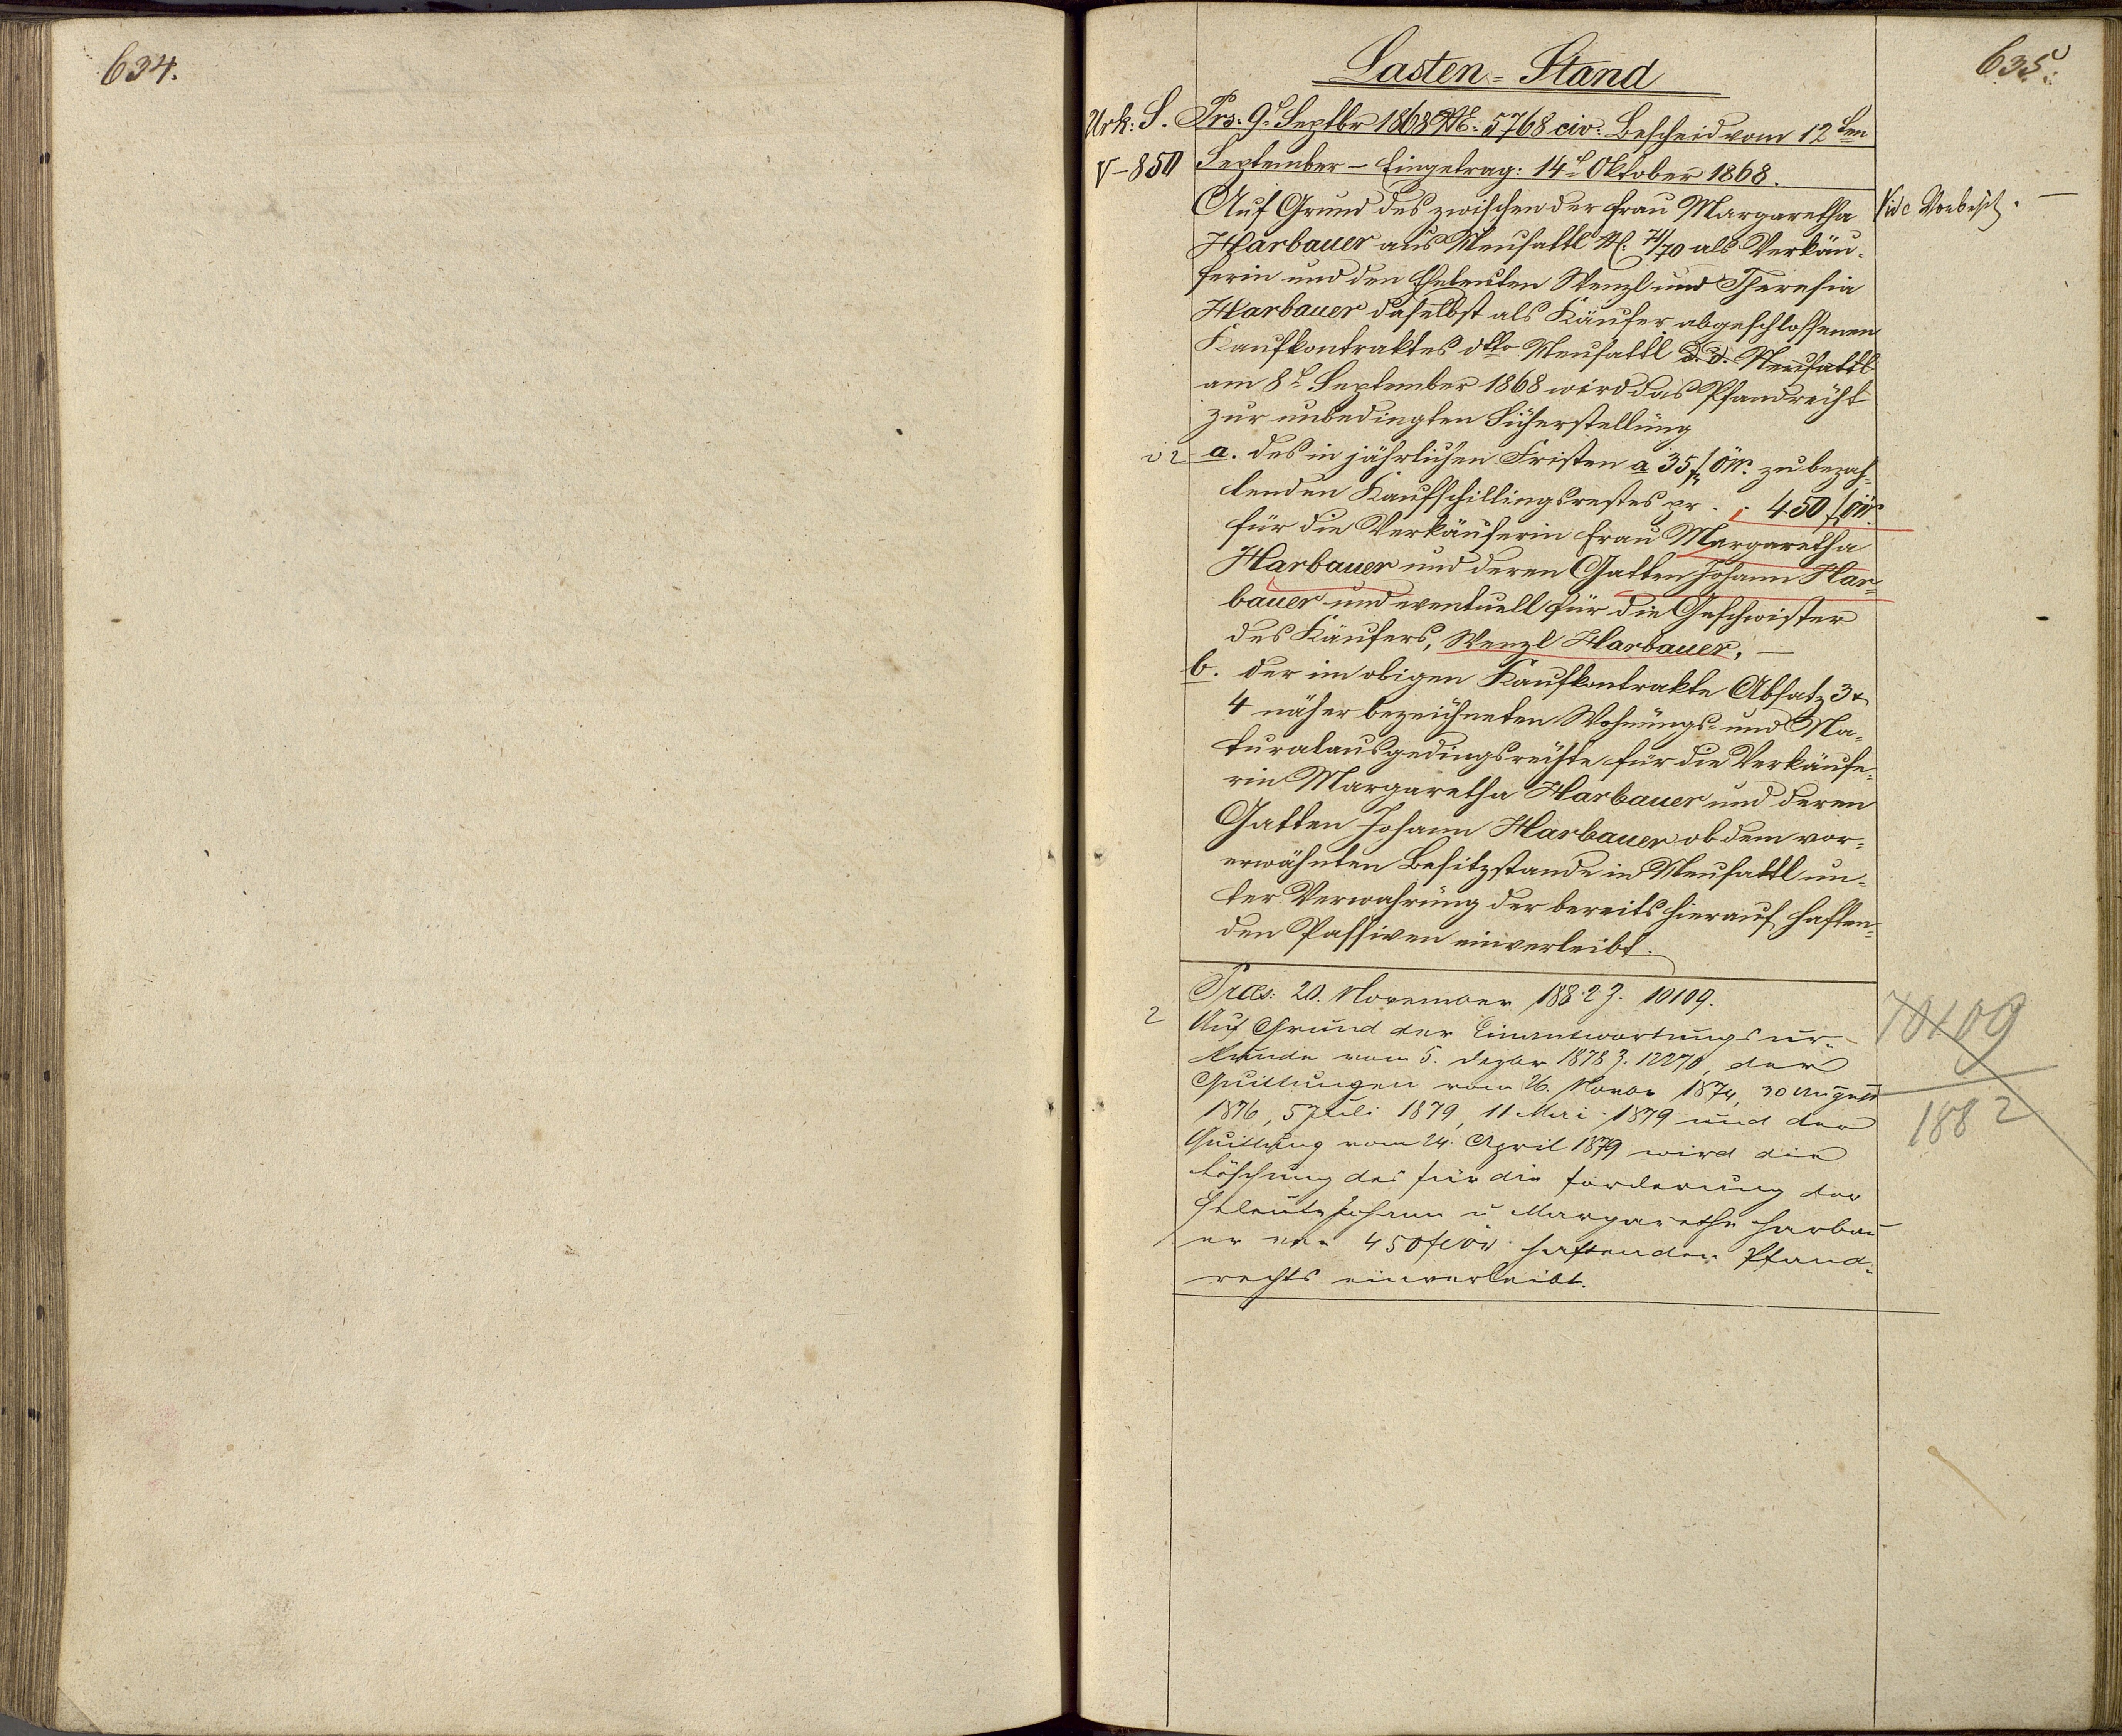 634.
635.
Lasten-Stand
Urk: S. Prs. 9t Septbr 1868 N: 5768 civ. Bescheid vom 12ten
V-850 September – Eingetrag: 14t Oktober 1868.
Auf Grund des zwischen der Frau Margaretha
Vide
Harbauer aus Neusattl N: 71/70 als Verkäu-
ferin und den Eheleuten Wenzl und Theresia
Harbauer daselbst als Käufer abgeschlossenen
Kaufkontraktes dtto Neusattl d. d. Neusattl
am 8t September 1868 wird das Pfandrecht
zur unbedingten Sicherstellung
a. des in jährlichen Fristen a 35 f öW. zu bezah-
lenden Kaufschillingsrestes pr . . 450 f öW.
für die Verkäuferin Frau Margaretha
Harbauer und deren Gatten Johann Har-
bauer und eventuell für die Geschwister
des Käufers, Wenzl Harbauer, –
b. der im obigen Kaufkontrakte Absatz 3 &
4 näher bezeichneten Wohnungs- und Na-
turalausgedingsrechte für die Verkäufe-
rin Margaretha Harbauer und deren
Gatten Johann Harbauer ob dem vor-
erwähnten Besitzstande in Neusattl un-
ter Verwahrung der bereits hierauf haften-
den Passiven einverleibt.
Præs: 20. November 1882 Z. 10109.
2 Auf Grund der Einantwortungsur-
kunde vom 5. Dezbr 1878 Z. 12270, der
Quittungen vom 26. Novbr 1874, 30 August
1876, 5 Juli 1879, 11 Mai 1879 und der
Quittung vom 24. April 1879 wird die
Löschung des für die Forderung der
Eheleute Johann u Margarethe Harbau
er von 450 fl öW haftenden Pfand-
rechts einverleibt.
10109
1882